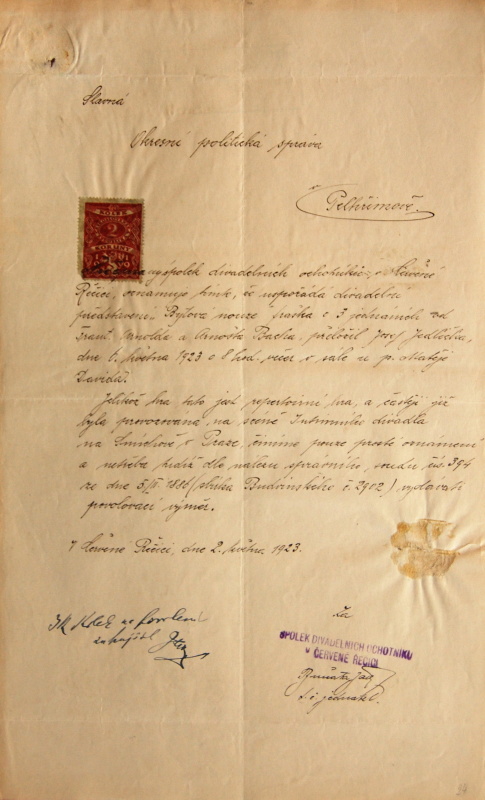 Slavná
Okresní politická správa
v Pelhřimově.
KOLEK
2
KORUNY
spolek divadelních ochotníků v Červené
Řečici, oznamuje tímto, že uspořádá divadelní
představení. Bytová nouze fraška o 3 jednáních od
Frant. Arnolda a Arnošta Bacha, přeložil Josef Jedlička,
dne 6. května 1923 o 8 hod. večer v sále u p. Matěje
Davida.
Jelikož hra tato jest repertoirní hra, a častěji již
byla provozována na scéně Intimního divadla
na Smíchově v Praze, činíme pouze prosté oznámení
a netřeba tudíž dle nálezu správního soudu čís. 394
ze dne 5/II. 1886 (sbírka Budvinského č. 2902) vydávati
povolovací výměr.
V Červené Řečici, dne 2. května 1923.
za
SPOLEK DIVADELNÍCH OCHOTNÍKŮ
v ČERVENÉ ŘEČICI
t. č. jednatel.